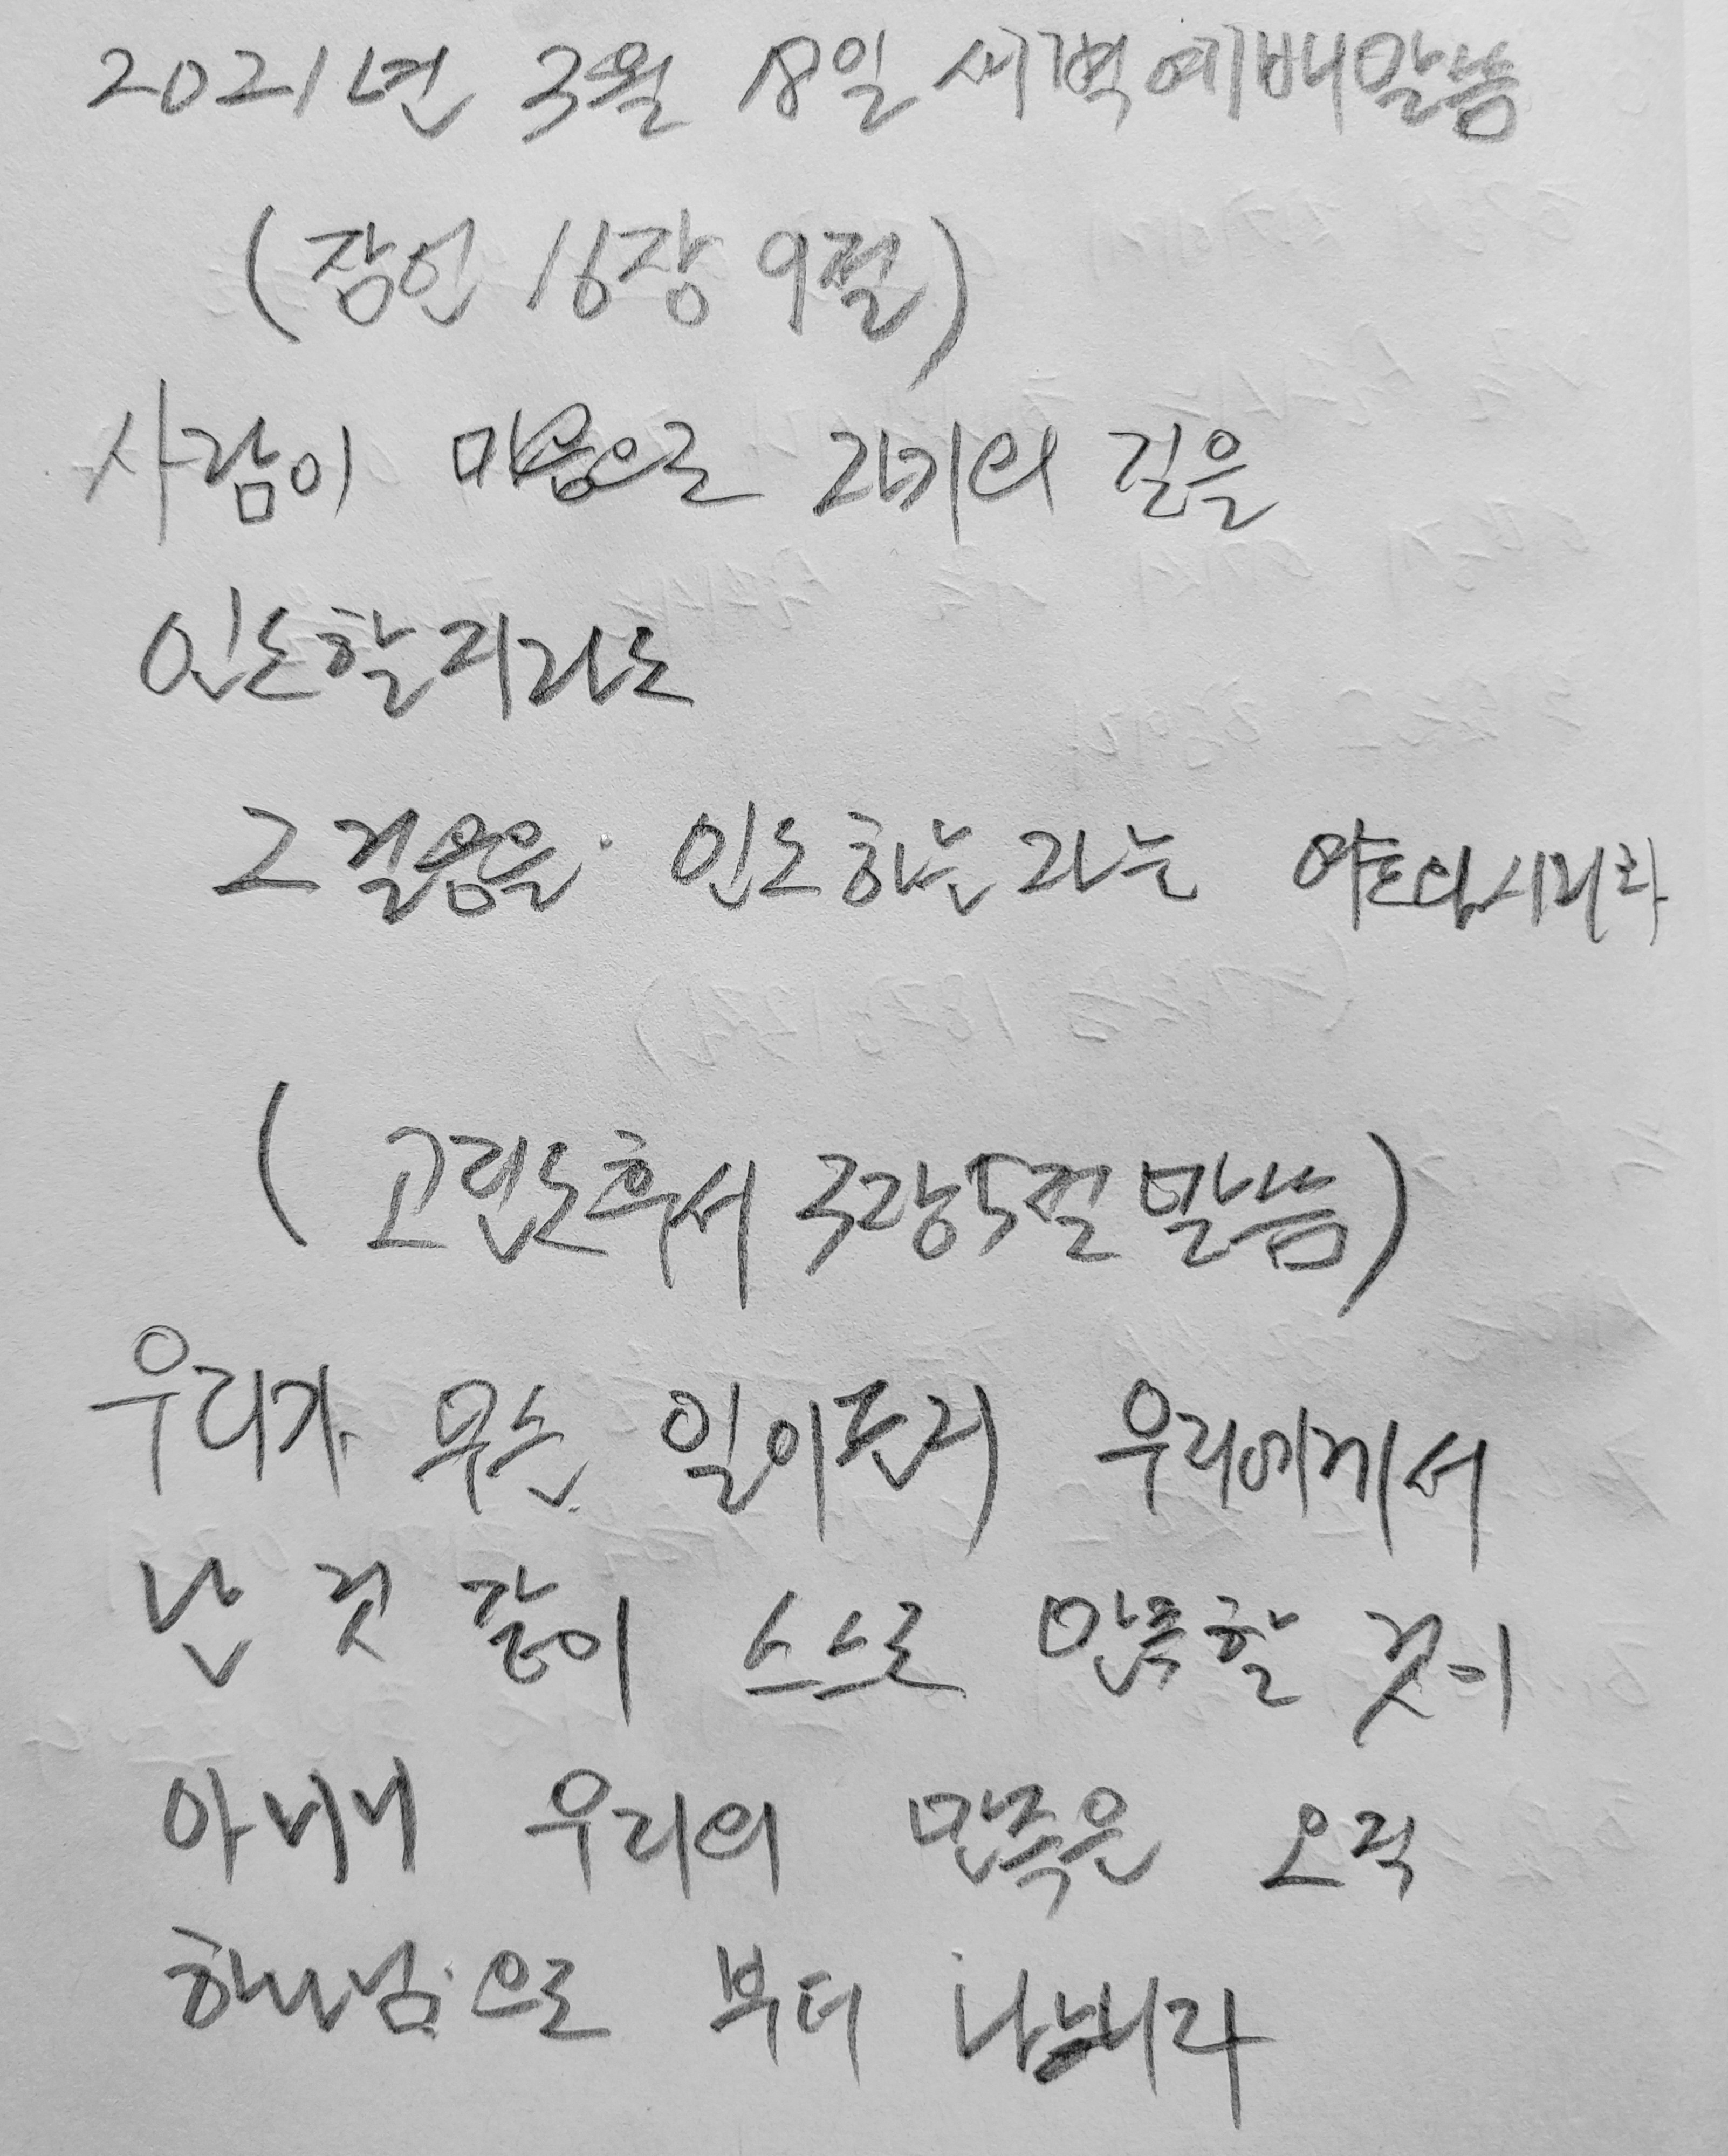 2021년 3월 8일 새벽예배말씀
(잠언 16장 9절)
사람이 마음으로 자기의 길을
인도할지라도
그 걸음을 인도하는 자는 여호와시니라
(고린도후서 3장5절 말씀)
우리가 무슨 일이든지 우리에게서
난 것 같이 스스로 만족할 것이
아니니 우리의 만족은 오직
하나님으로 부터 나느니라